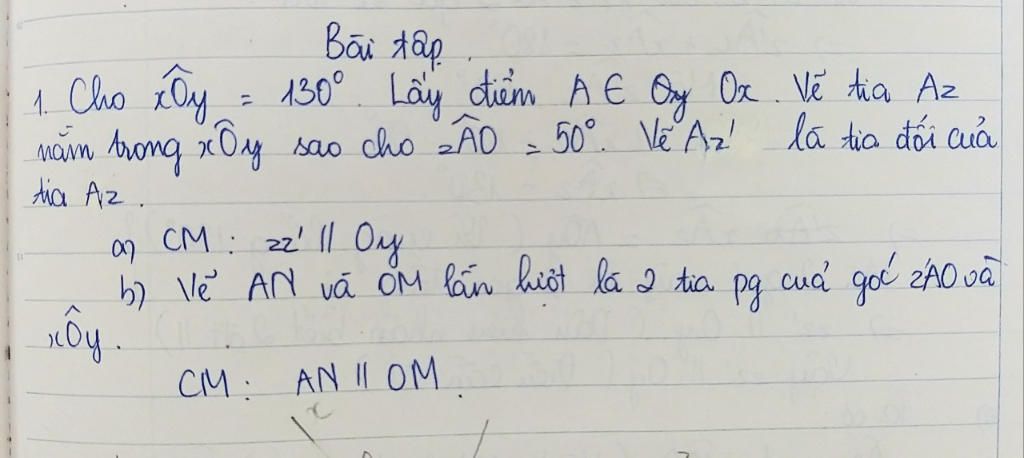 Bài tập.
1. Cho xÔy = 130°. Lấy điểm A ∈ Oy Ox. Vẽ tia Az
nằm trong xÔy sao cho zÂO = 50°. Vẽ Az' là tia đối của
tia Az.
a) CM: zz' // Oy
b) Vẽ AN và OM lần lượt là 2 tia pg của góc z'AO và
xÔy.
CM: AN // OM.
x